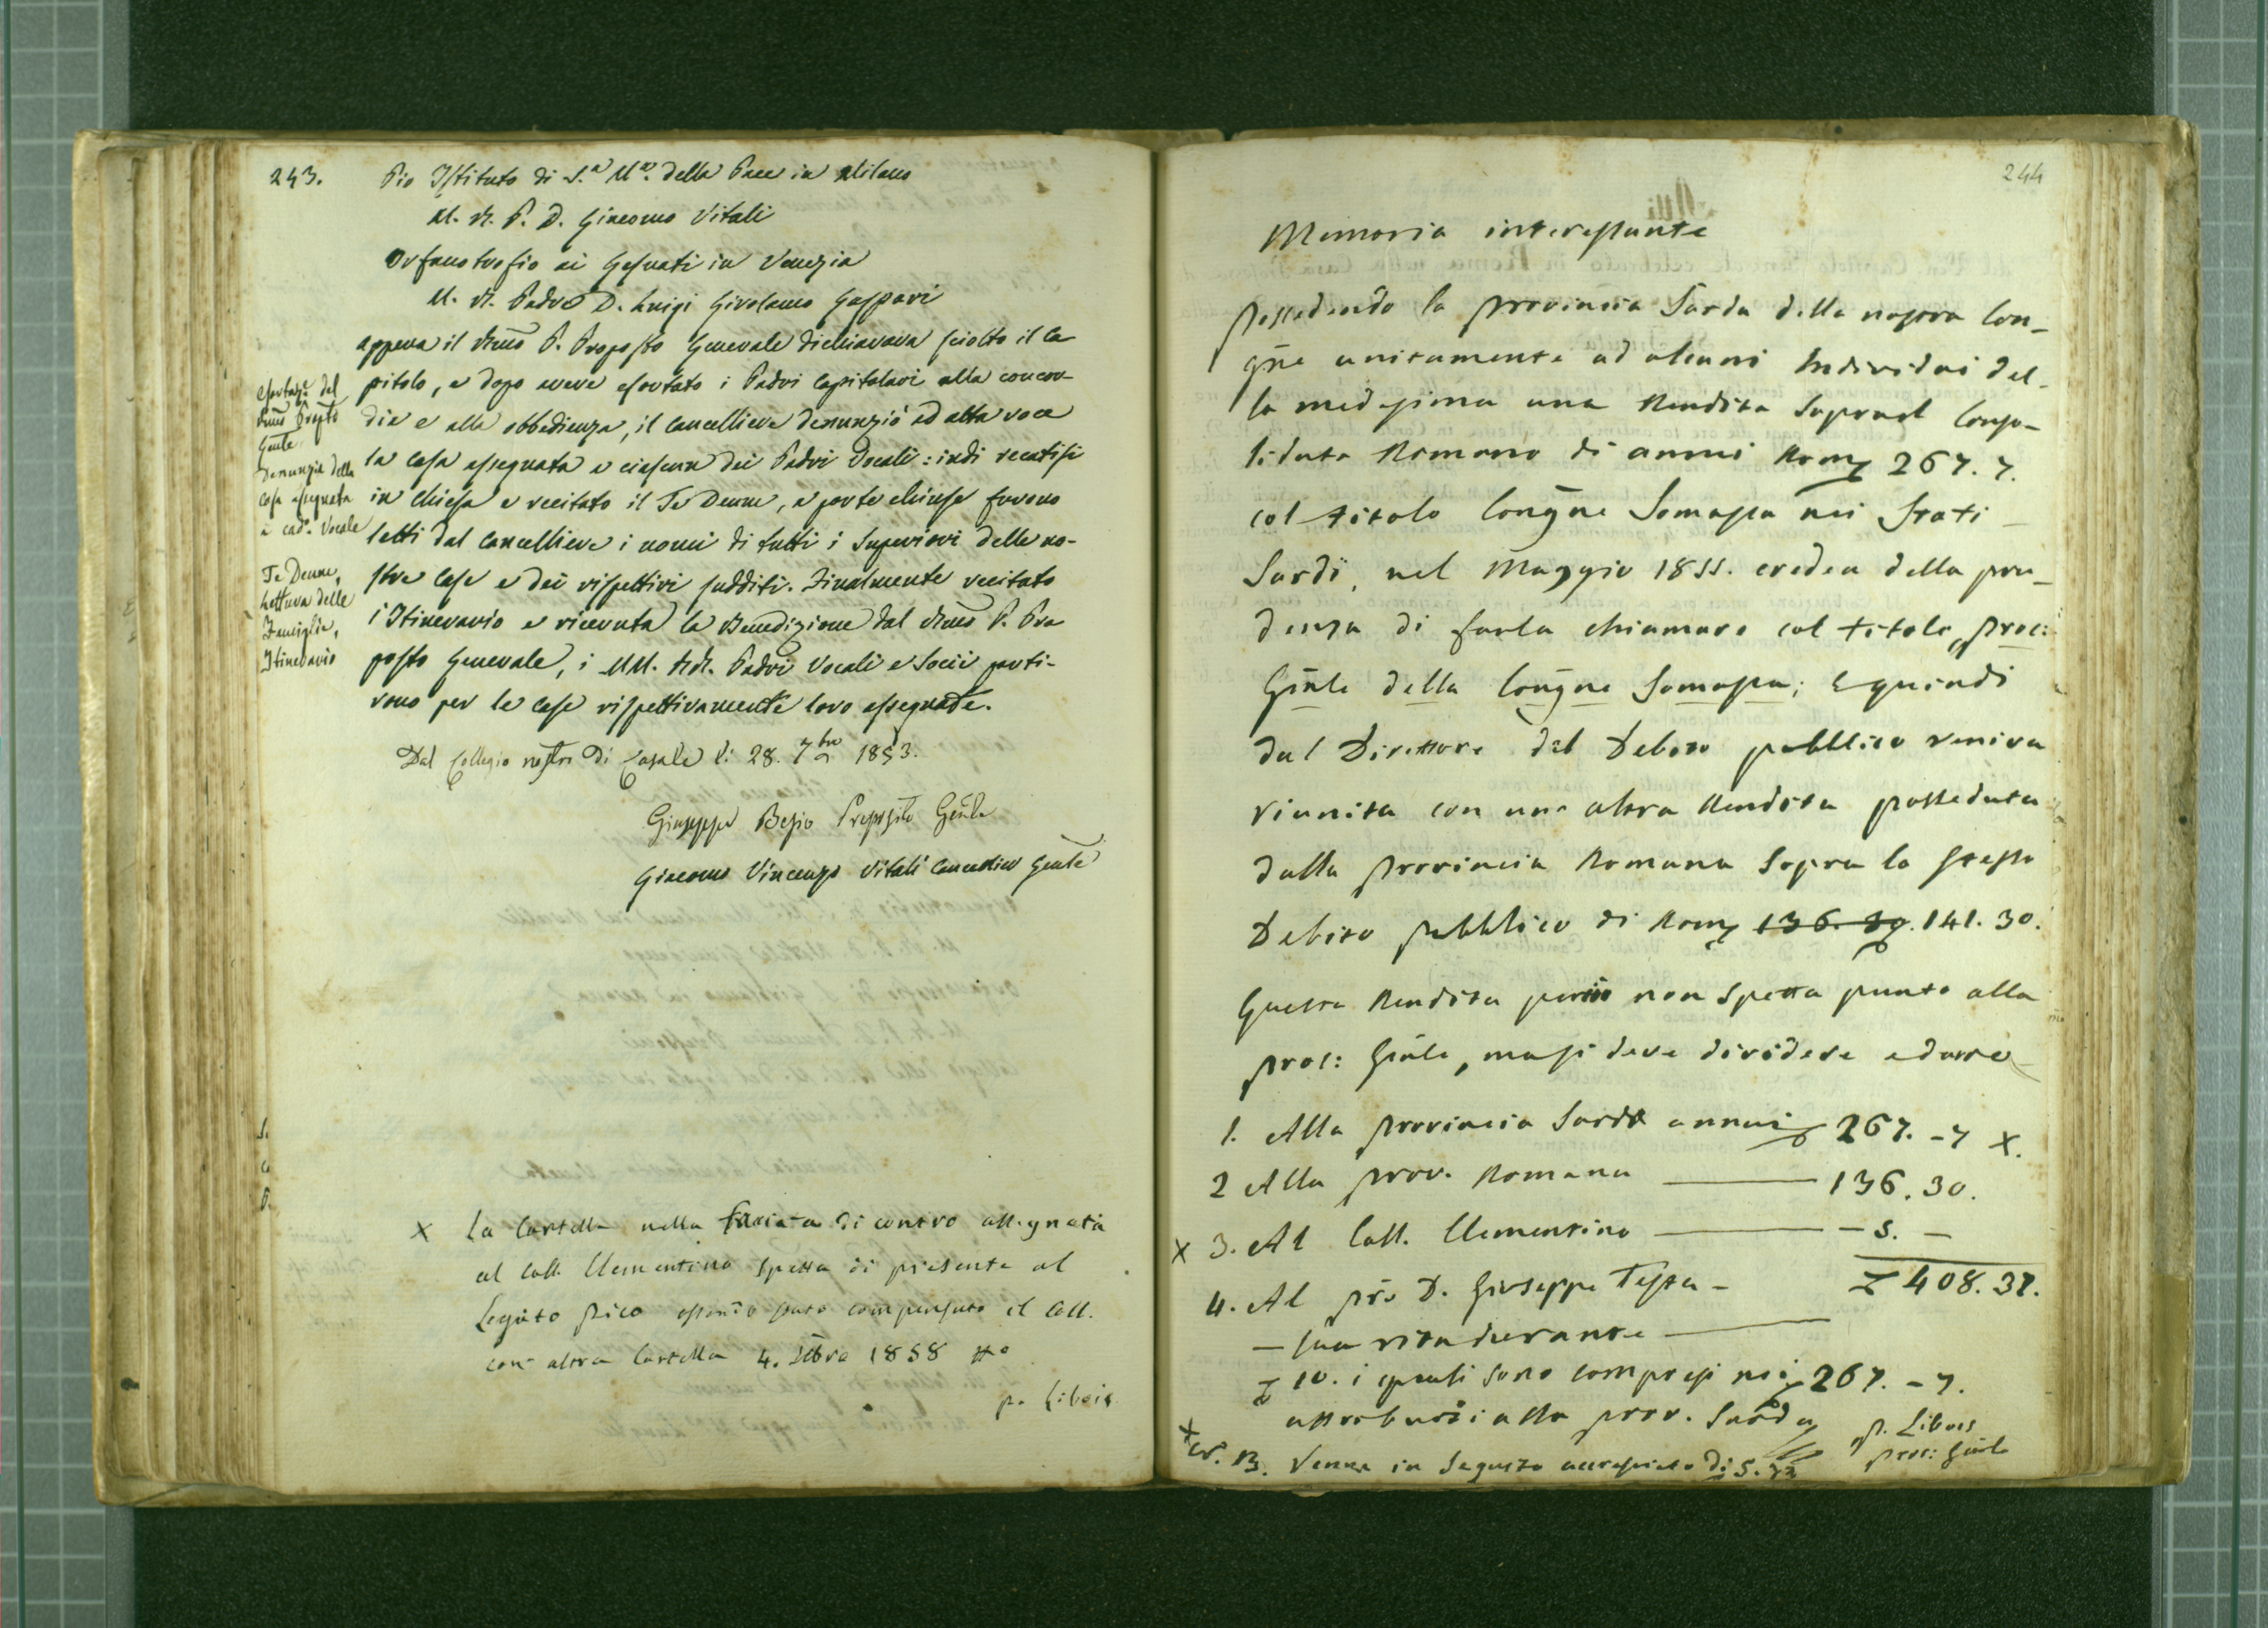 243.
Pio Istituto di S.a M.a della Pace in Milano
M. R. P. D. Giacomo Vitali
Orfanotrofio ai Gesuati in Venezia
M. R. Padre D. Luigi Girolamo Gaspari
appena il Rmo P. Proposto Generale dichiarava sciolto il Ca
pitolo, e dopo avere esortato i Padri Capitolari alla concor-
dia e alla obbedienza, il Cancelliere denunziò ad alta voce
la casa assegnata a ciascun dei Padri Vocali: indi recatisi
in Chiesa e recitato il Te Deum, a porte chiuse furono
letti dal Cancelliere i nomi di tutti i Superiori delle no-
stre Case e dei rispettivi sudditi. Finalmente recitato
l'Itinerario e ricevuta la Benedizione dal Rmo P. Pro
posto Generale, i MM. RR. Padri Vocali e Socii parti-
rono per le case rispettivamente loro assegnate.
Esortaze. del
Rmo Prepto
Gnle
Denunzia della
casa assegnata
a cado. Vocale
Te Deum,
Lettura delle
Famiglie,
Itinerario
Dal Collegio nostro di Casale li 28. 7bre 1853.
Giuseppe Besio Preposito Gnle
Giacomo Vincenzo Vitali Cancelliere Gnle
X La Cartella nella facciata di contro assegnata
al Coll. Clementino spetta di presente al
Legato Pico essendo stato compensato il Coll.
con altra Cartella 4. 1858
p. Libois
244
Memoria interessante
Possedendo la provincia Sarda della nostra Con-
gne unitamente ad alcuni Individui del-
la medesima una Rendita Sopra il Conso-
lidato Romano di annui Rom 267. 7.
col titolo Congne Somasca nei Stati
Sardi, nel Maggio 1855. credea della pru-
denza di farla chiamare col titolo, proc:
Gnle della Congne Somasca; E quindi
dal Direttore del Debito pubblico veniva
riunita con una altra Rendita posseduta
dalla Provincia Romana Sopra lo stesso
Debito pubblico di Rom 136. 30. 141. 30.
Questa Rendita però non spetta punto alla
proc: Gnle, ma si deve dividere e darne
1. Alla Provincia Sarda annui 267. -7 X.
2 Alla prov. Romana — 136. 30.
X 3. Al Coll. Clementino — - 5. -
408. 37.
4. Al pre D. Giuseppe Testa -
- sua vita durante —
10. i quali sono compresi nei 267. - 7.
attribuiti alla prov. Sarda
p. Libois
proc: Gnle
X N. B. Venne in Seguito accresciuta di 5.